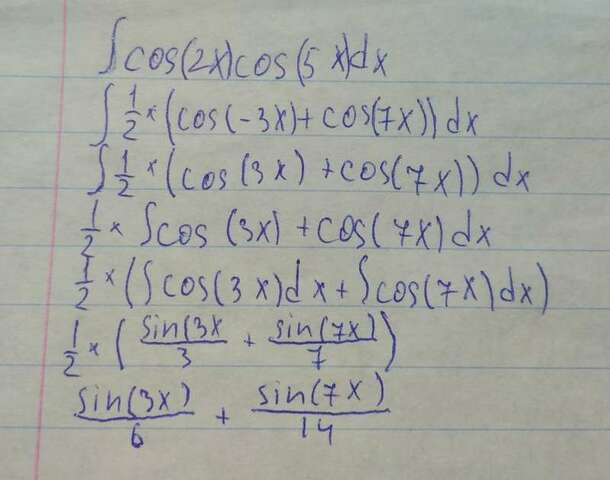 ∫cos(2x)cos(5x)dx
∫ 1/2 × (cos(-3x)+cos(7x)) dx
∫ 1/2 × (cos(3x)+cos(7x)) dx
1/2 × ∫cos(3x)+cos(7x)dx
1/2 × (∫cos(3x)dx+∫cos(7x)dx)
1/2 × (sin(3x/3 + sin(7x)/7)
sin(3x)/6 + sin(7x)/14